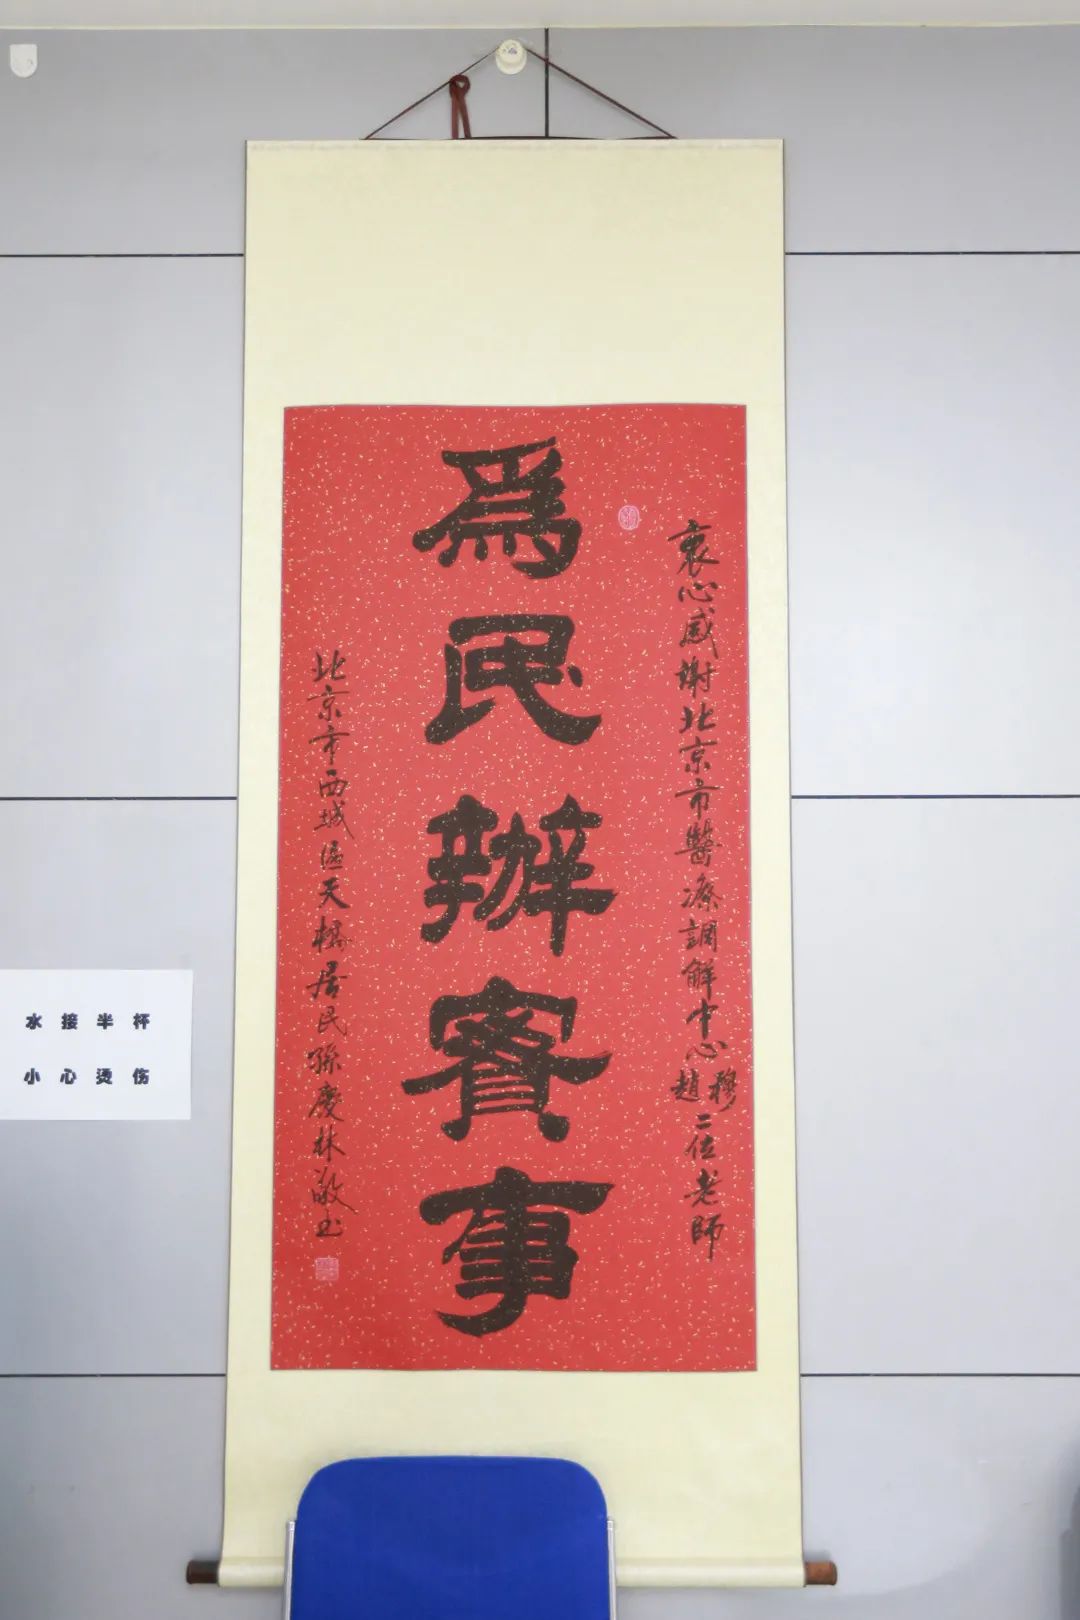 衷心感謝北京市醫療調解中心趙穆二位老師
為民辦實事
北京市西城區天橋居民孫慶林敬书
水接半杯
小心烫伤